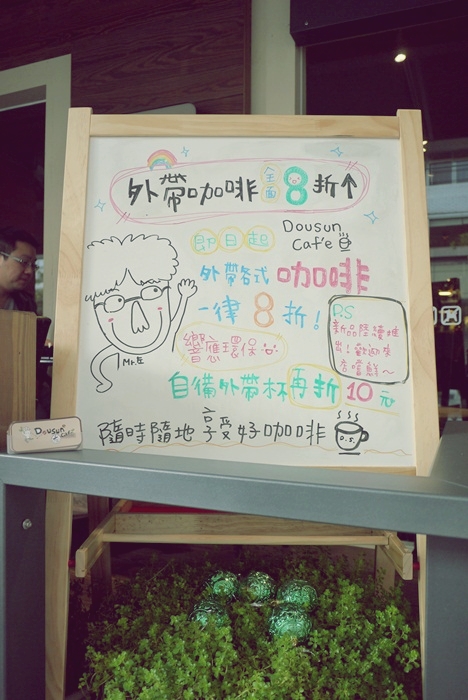 外帶咖啡全面8折↑
即日起 Dousun Cafe
外帶各式咖啡
一律8折!
P.S
新品陸續推
出!歡迎來
店嚐鮮~
Mr.E
響應環保
自備外帶杯再折10元
隨時隨地享受好咖啡 D.S.
Dousun
Cafe